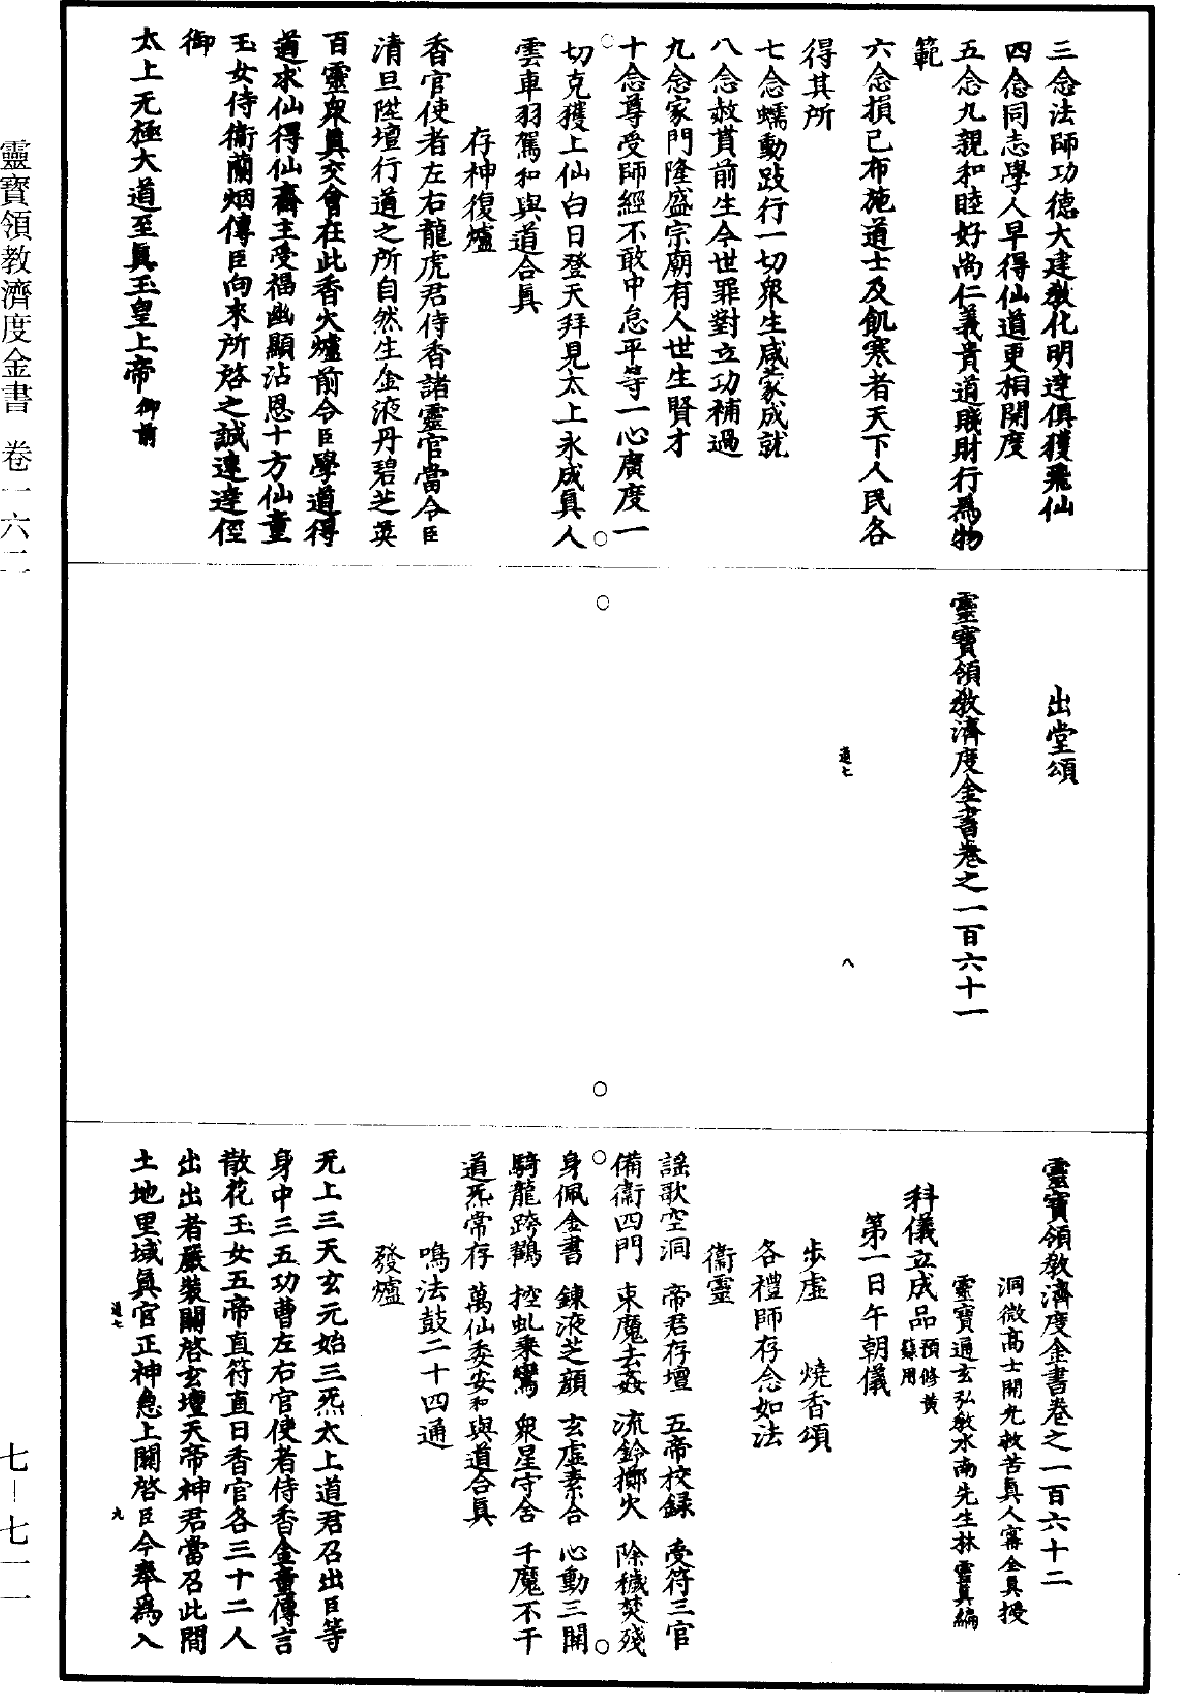 三念法師功德大建教化明達俱獲飛仙
四念同志學人早得仙道更相開度
五念九親和睦好尚仁義貴道賤財行為物
範
六念損己布施道士及飢寒者天下人民各
得其所
七念蠕動跂行一切眾生咸蒙成就
八念赦貰前生今世罪對立功補過
九念家門隆盛宗廟有人世生賢才
十念尊受師經不敢中怠平等一心廣度一
切克獲上仙白日登天拜見太上永成真人
雲車羽駕和與道合真
存神復爐
香官使者左右龍虎君侍香諸靈官當令臣
清旦陞壇行道之所自然生金液丹碧芝英
百靈眾真交會在此香火爐前令臣學道得
道求仙得仙齋主受福幽顯沾恩十方仙童
玉女侍衛蘭烟傳臣向來所啓之誠速達徑
御
太上无極大道至真玉皇上帝御前
出堂頌
靈寶領教濟度金書卷之一百六十一
道七
八
靈寶領教濟度金書卷之一百六十二
洞微高士開光救苦真人甯全真授
靈寶通玄弘教水南先生林靈真編
科儀立成品預修黃籙用
第一日午朝儀
步虛 燒香頌
各禮師存念如法
衛靈
謠歌空洞 帝君存壇 五帝校録 受符三官
備衛四門 束魔去姦 流鈴擲火 除穢焚殘
身佩金書 鍊液芝顏 玄虛素合 心動三開
騎龍跨鶴 控虬乘鸞 眾星守舍 千魔不干
道炁常存 萬仙委安和與道合真
鳴法鼓二十四通
發爐
无上三天玄元始三炁太上道君召出臣等
身中三五功曹左右官使者侍香金童傳言
散花玉女五帝直符直日香官各三十二人
出出者嚴裝關啓玄壇天帝神君當召此間
土地里域真官正神急上關啓臣今奉為入
道七
九
靈寶領教濟度金書 卷一六二
七—七一一